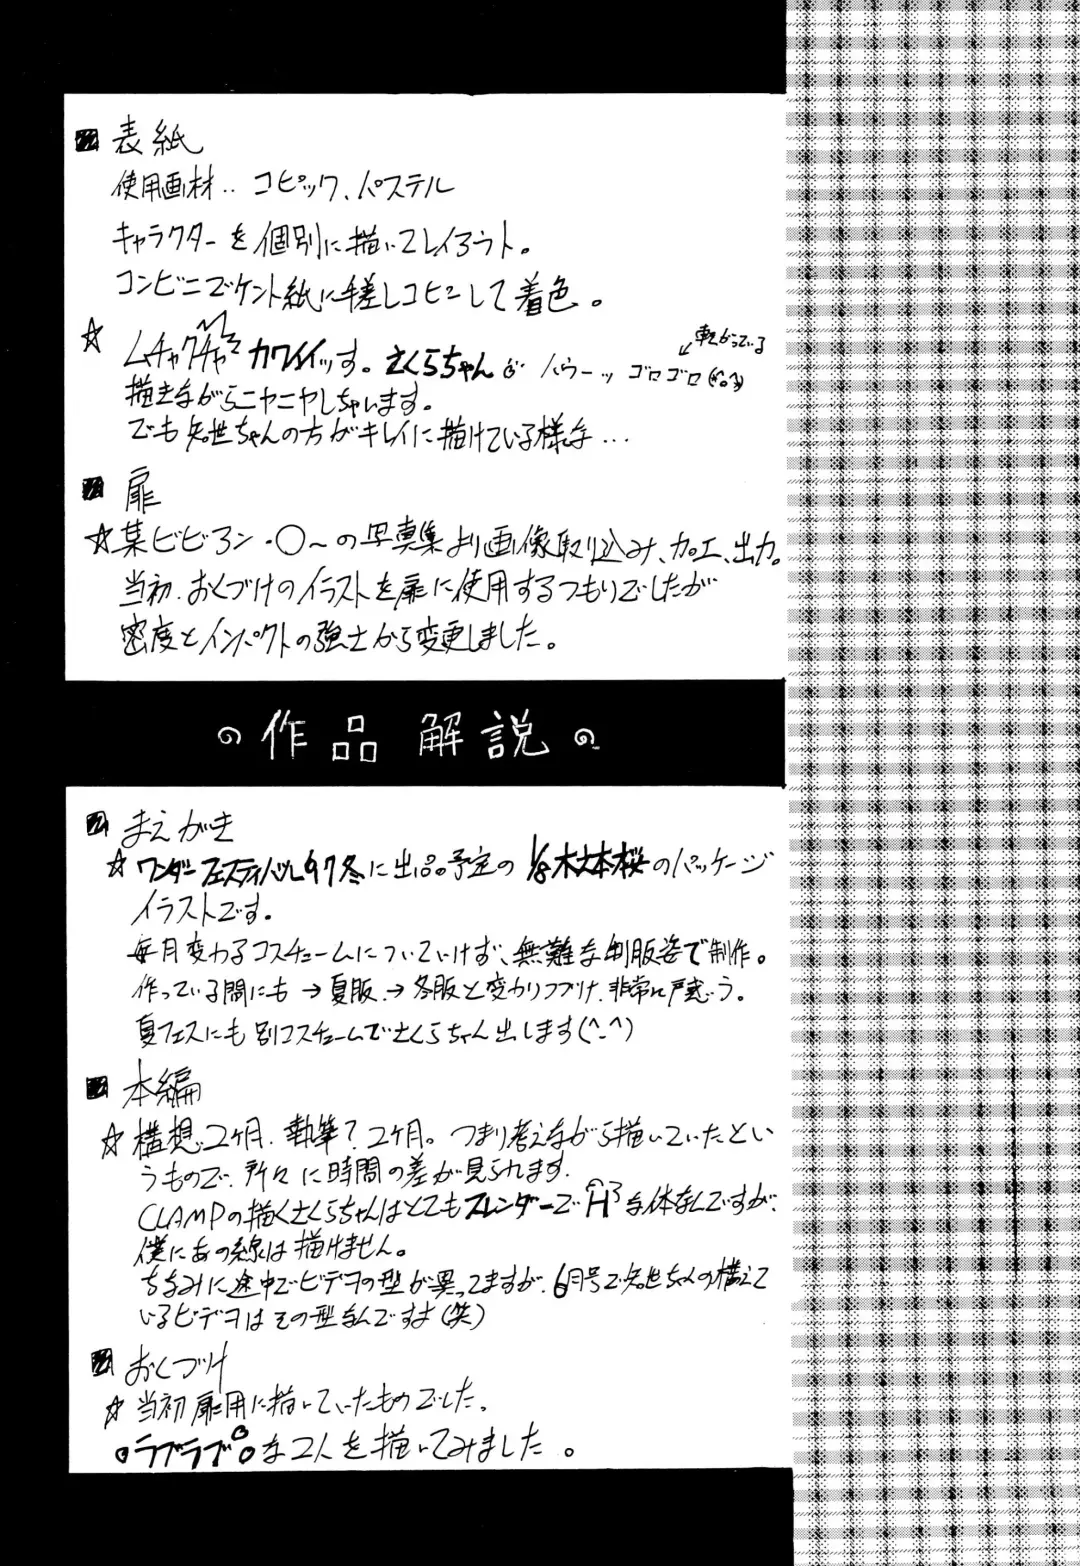 表紙
使用画材‥コピック、パステル
キャラクターを個別に描いてレイアウト。
コンビニでケント紙に手差しコピーして着色。
☆ムチャクチャカワイイッす。さくらちゃんが ハウーッ ゴロゴロ(^o^)
転がっている
描きながらニヤニヤしちゃいます。
でも知世ちゃんの方がキレイに描けている様な…
扉
☆某ビビアン・〇〜の写真集より画像取り込み、加工、出力。
当初、おくづけのイラストを扉に使用するつもりでしたが
密度とインパクトの強さから変更しました。
作品解説
まえがき
☆ワンダーフェスティバル97冬に出品予定の1/8木之本桜のパッケージ
イラストです。
毎月変わるコスチュームについていけず、無難な制服姿で制作。
作っている間にも→夏服→冬服と変わりつづけ、非常に戸惑う。
夏フェスにも別コスチュームでさくらちゃん出します(^-^)
本編
☆構想、2ヶ月、執筆?2ヶ月。つまり考えながら描いていたとい
うもので、所々に時間の差が見られます。
CLAMPの描くさくらちゃんはとてもスレンダーでHな体なんですが、
僕にあの線は描けません。
ちなみに途中でビデヲの型が異ってますが、6月号で知世ちゃんの構えて
いるビデヲはその型なんですよ(笑)
おくづけ
☆当初扉用に描いていたものでした。
ラブラブな2人を描いてみました。